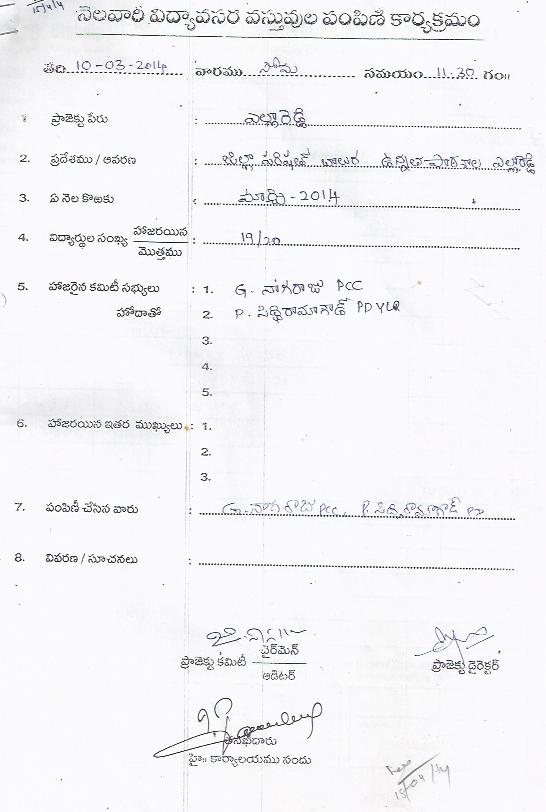 15/4/14
నెలవారీ విద్యావసర వస్తువుల పంపిణి కార్యక్రమం
తేది 10-03-2014 వారము సోమ సమయం 11.30 గం॥
1 ప్రాజెక్టు పేరు : ఎల్లారెడ్డి
2. ప్రదేశము / ఆవరణ : జిల్లా పరిషత్ బాలుర ఉన్నత పాఠశాల ఎల్లారెడ్డి
3. ఏ నెల కొఱకు : మార్చి - 2014
4. విద్యార్థుల సంఖ్య హాజరయిన / మొత్తము : 19/20
5. హాజరైన కమిటీ సభ్యులు : 1. G. నాగరాజు PCC
హోదాతో 2. P. సిద్ధిరామాగౌడ్ PDYLR
3.
4.
5.
6. హాజరయిన ఇతర ముఖ్యులు : 1.
2.
3.
7. పంపిణీ చేసిన వారు : G. నాగరాజు PCC, P. సిద్ధిరామాగౌడ్ PD
8. వివరణ / సూచనలు :
ప్రాజెక్టు కమిటీ ఛైర్‌మెన్ / ఆడిటర్
ప్రాజెక్టు డైరెక్టర్
హై॥ కార్యాలయము నందు
15/04/14